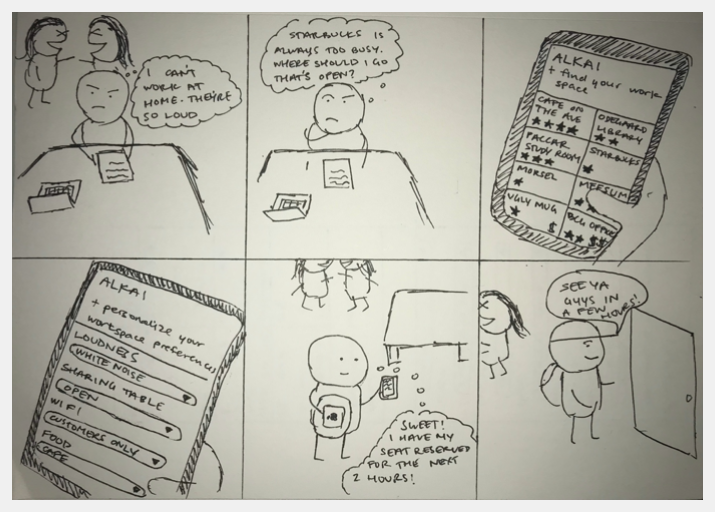 I CAN'T
WORK AT
HOME. THEY'RE
SO LOUD
STARBUCKS IS
ALWAYS TOO BUSY.
WHERE SHOULD I GO
THAT'S OPEN?
ALKAI
+ find your work
space
CAFE ON
THE AVE
★★★★
ODEGAARD
LIBRARY
★★
PACCAR
STUDY ROOM
★★★
STARBUCKS
★
MORSEL
★
MERSUM
★★
UGLY MUG
★ $
BCG OFFICE
★★ $$
ALKAI
+ personalize your
workspace preferences
LOUDNESS
WHITE NOISE
SHARING TABLE
OPEN
WIFI
CUSTOMERS ONLY
FOOD
CAFE
SWEET!
I HAVE MY
SEAT RESERVED
FOR THE NEXT
2 HOURS!
SEE YA
GUYS IN
A FEW HOURS!